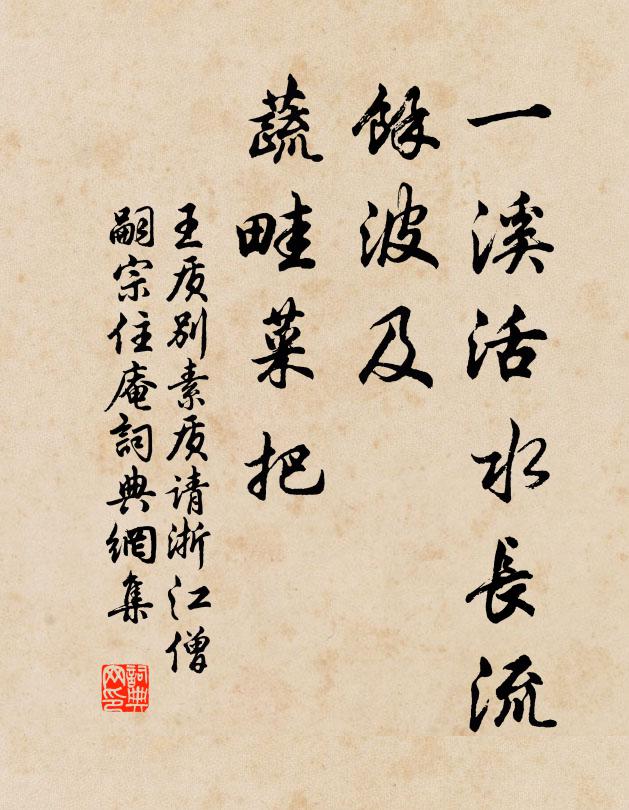 一溪活水長流
餘波及
蔬畦菜把
王质别素质请浙江僧
嗣宗住庵詞典網集
詞典网印